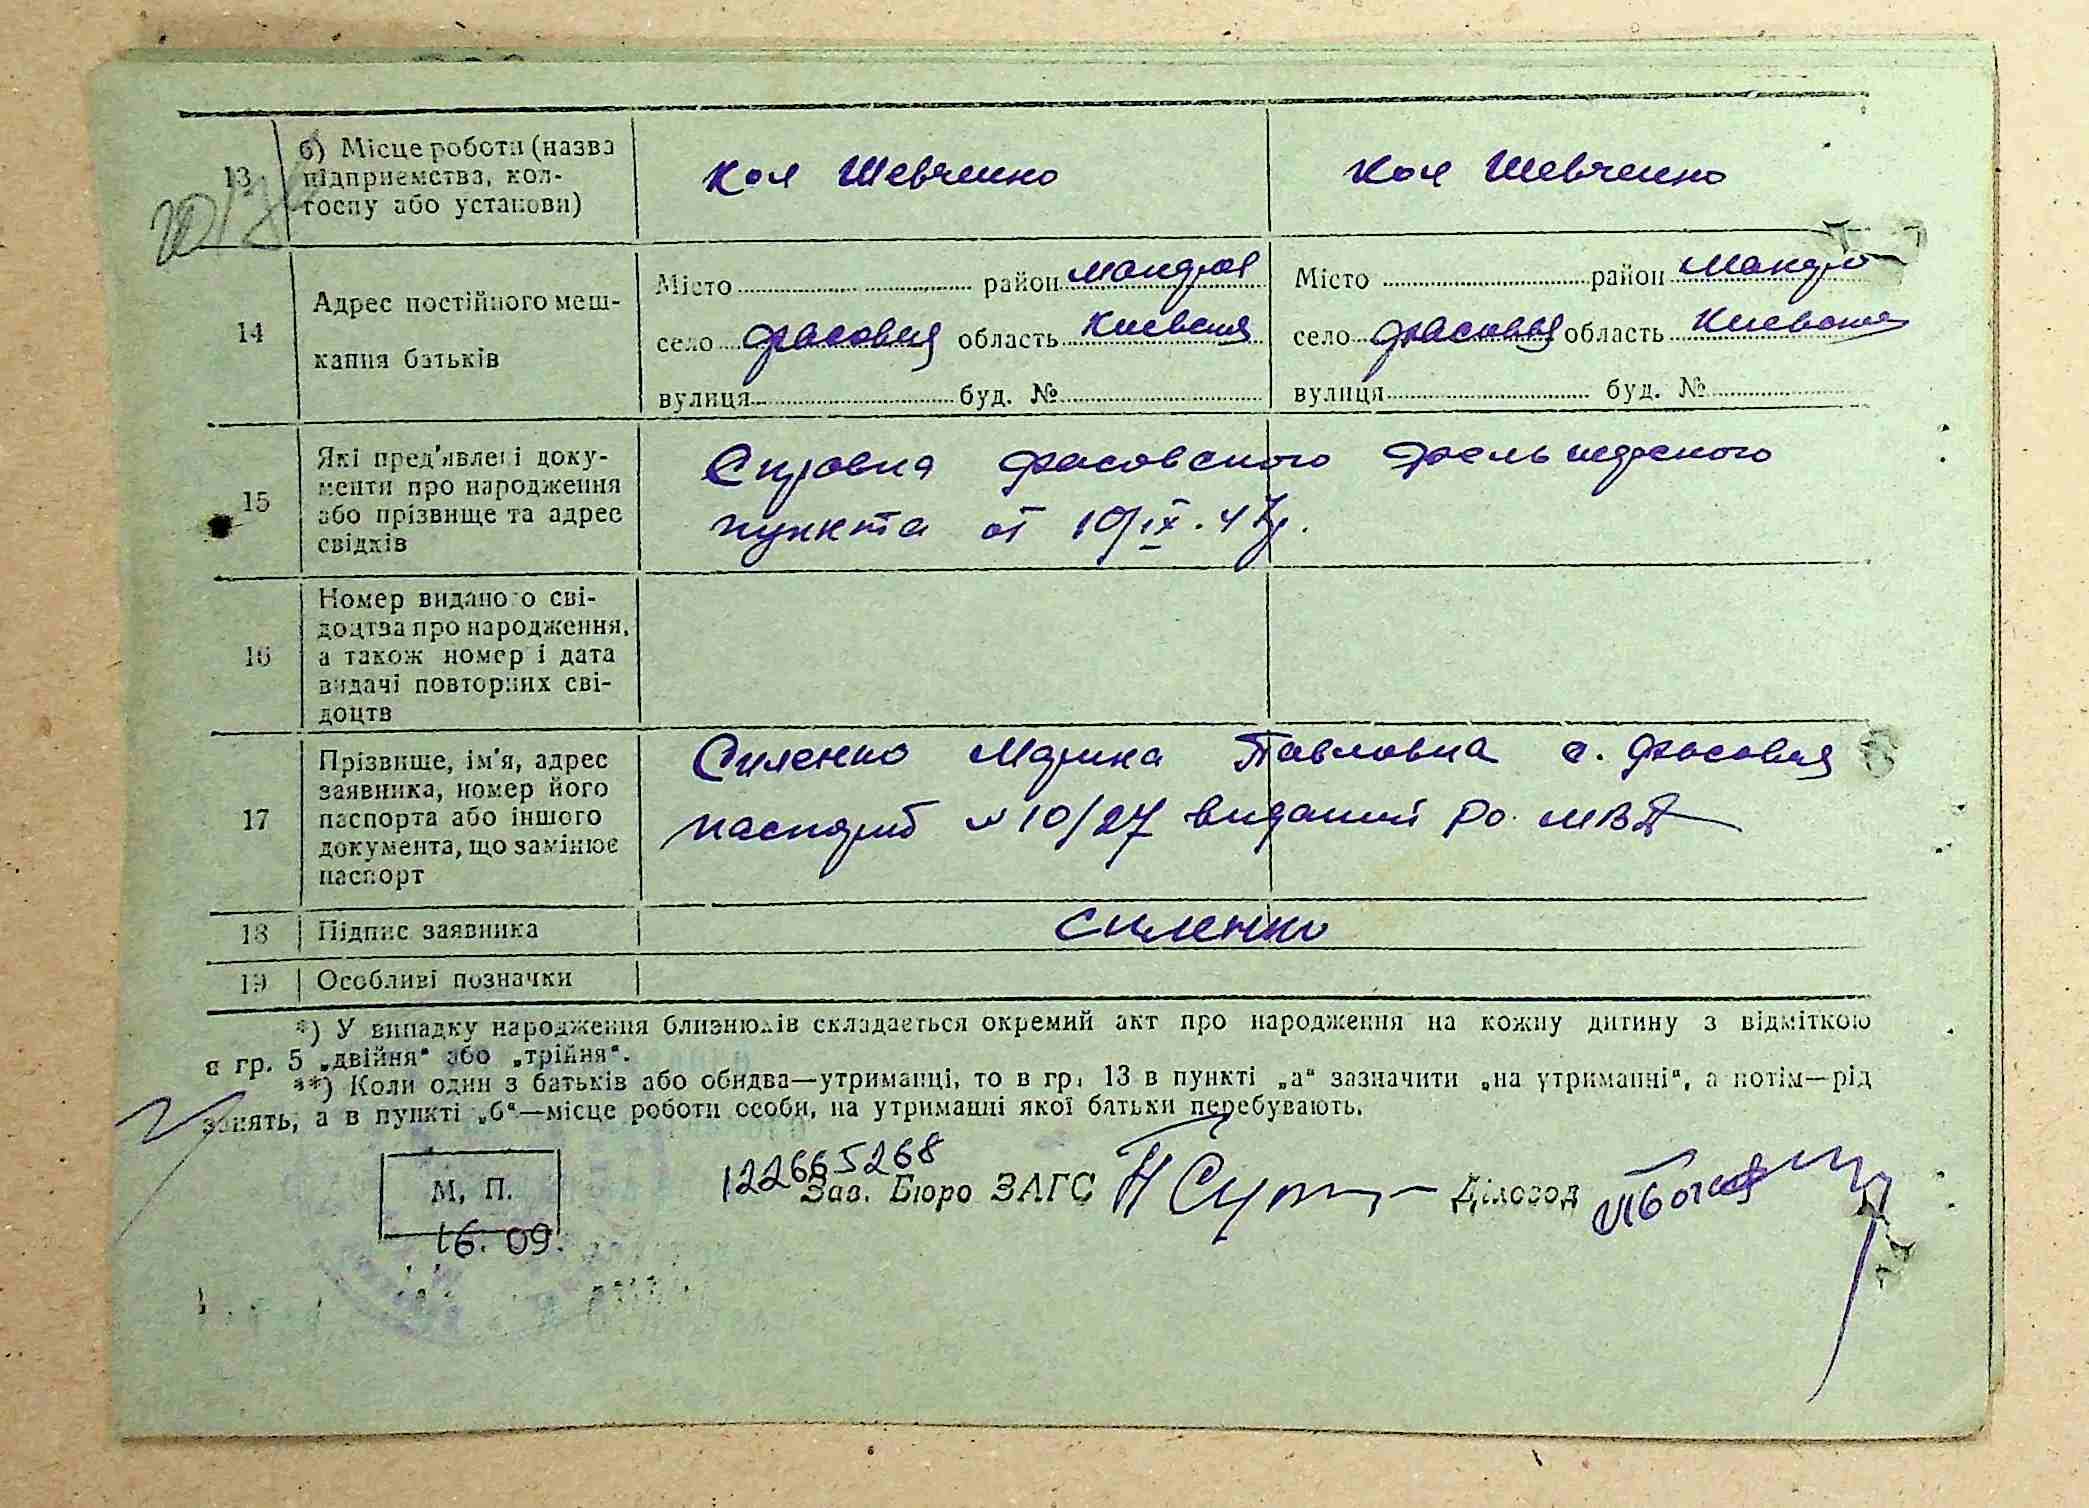 13 б) Місце роботи (назва підприємства, колгоспу або установи)
Кол Шевченко
Кол Шевченко
14 Адрес постійного меш-
кання батьків
Місто район
село область Киевская
вулиця буд. №
Місто район
село область Киевская
вулиця буд. №
15 Які пред'явлені доку-
менти про народження
або прізвище та адрес
свідків
Справка фасовского фельшерского
пункта от 10/IX-47г.
16 Номер виданого сві-
доцтва про народження,
а також номер і дата
видачі повторних сві-
доцтв
17 Прізвише, ім'я, адрес
заявника, номер його
паспорта або іншого
документа, що замінює
паспорт
Силенко Марина Павловна с. Фасовая
паспорт № 10/27 виданий Ро. МВД
18 Підпис заявника
Силенко
19 Особливі позначки
*) У випадку народження близнюків складається окремий акт про народження на кожну дитину з відміткою
в гр. 5 „двійня“ або „трійня“.
**) Коли один з батьків або обидва—утриманці, то в гр. 13 в пункті „а“ зазначити „на утриманні“, а потім—рід
занять, а в пункті „б“—місце роботи особи, на утриманні якої батьки перебувають.
122665268
М. П. Зав. Бюро ЗАГС Діловод
16.09.